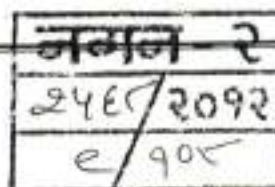 नगन - २
२५६८/२०१२
९/१०८